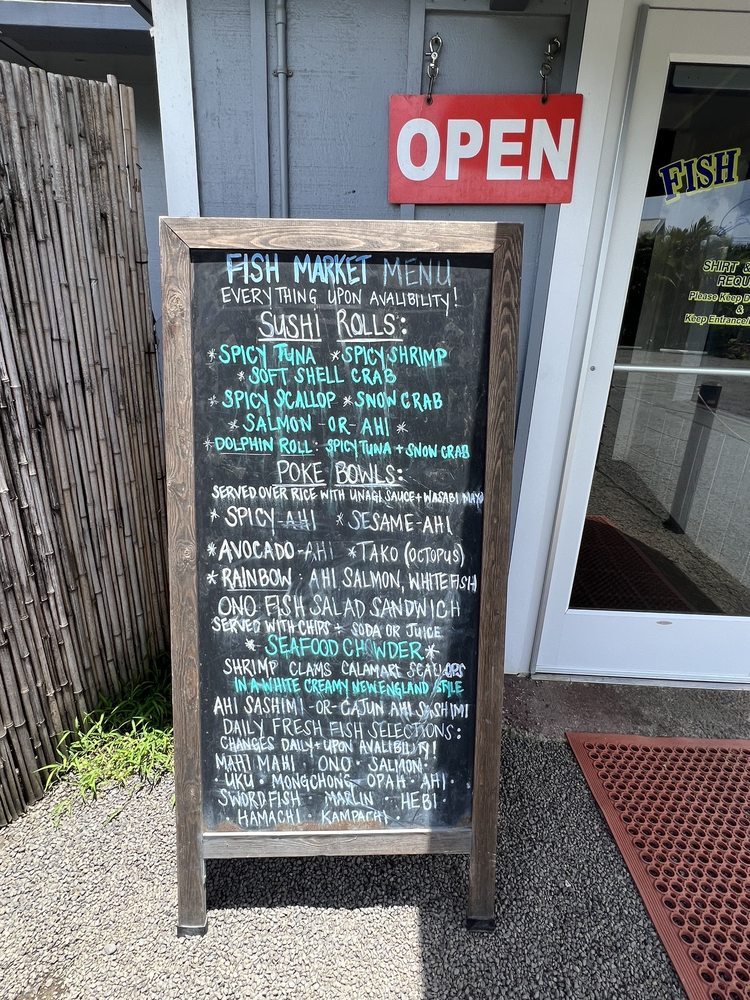 OPEN
FISH MARKET MENU
EVERYTHING UPON AVALIBILITY!
SUSHI ROLLS:
*SPICY TUNA *SPICY SHRIMP
*SOFT SHELL CRAB
*SPICY SCALLOP *SNOW CRAB
*SALMON -OR- AHI *
*DOLPHIN ROLL: SPICY TUNA + SNOW CRAB
POKE BOWLS:
SERVED OVER RICE WITH UNAGI SAUCE + WASABI MAYO
*SPICY-AHI *SESAME-AHI
*AVOCADO-AHI *TAKO (OCTOPUS)
*RAINBOW: AHI SALMON, WHITEFISH
ONO FISH SALAD SANDWICH
SERVED WITH CHIPS + SODA OR JUICE
*SEAFOOD CHOWDER*
SHRIMP CLAMS CALAMARI SCALLOPS
IN A WHITE CREAMY NEW ENGLAND STYLE
AHI SASHIMI -OR- CAJUN AHI SASHIMI
DAILY FRESH FISH SELECTIONS:
CHANGES DAILY + UPON AVALIBILITY!
MAHI MAHI · ONO · SALMON ·
· UKU · MONGCHONG · OPAH · AHI ·
SWORDFISH · MARLIN · HEBI ·
· HAMACHI · KAMPACHI ·
FISH
SHIRT &
REQU
Please Keep D
&
Keep Entrance/